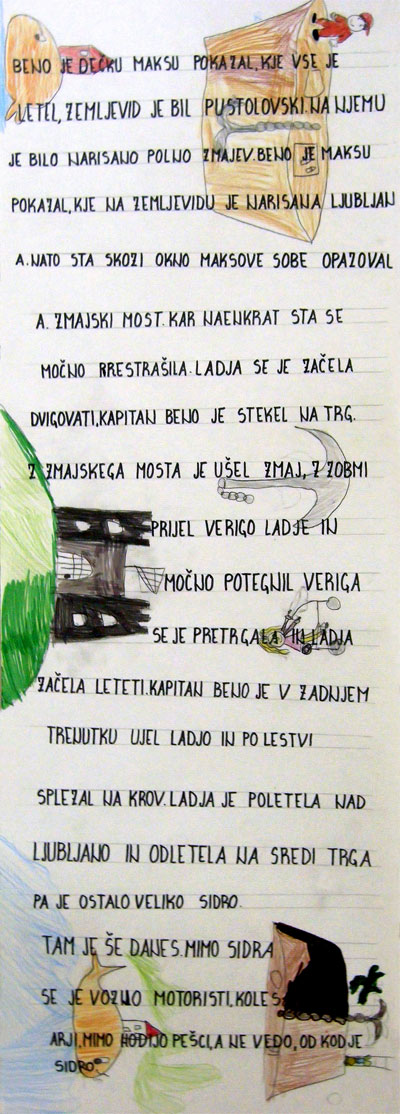 BENO JE DEČKU MAKSU POKAZAL, KJE VSE JE
LETEL, ZEMLJEVID JE BIL PUSTOLOVSKI. NA NJEMU
JE BILO NARISANO POLNO ZMAJEV. BENO JE MAKSU
POKAZAL, KJE NA ZEMLJEVIDU JE NARISANA LJUBLJAN
A. NATO STA SKOZI OKNO MAKSOVE SOBE OPAZOVAL
A. ZMAJSKI MOST. KAR NAENKRAT STA SE
MOČNO RRESTRAŠILA. LADJA SE JE ZAČELA
DVIGOVATI, KAPITAN BENO JE STEKEL NA TRG.
Z ZMAJSKEGA MOSTA JE UŠEL ZMAJ, Z ZOBMI
PRIJEL VERIGO LADJE IN
MOČNO POTEGNIL VERIGA
SE JE PRETRGALA IN LADJA
ZAČELA LETETI. KAPITAN BENO JE V ZADNJEM
TRENUTKU UJEL LADJO IN PO LESTVI
SPLEZAL NA KROV. LADJA JE POLETELA NAD
LJUBLJANO IN ODLETELA NA SREDI TRGA
PA JE OSTALO VELIKO SIDRO.
TAM JE ŠE DANES. MIMO SIDRA
SE JE VOZIJO MOTORISTI, KOLES
ARJI, MIMO HODIJO PEŠCI, A NE VEDO, OD KOD JE
SIDRO.